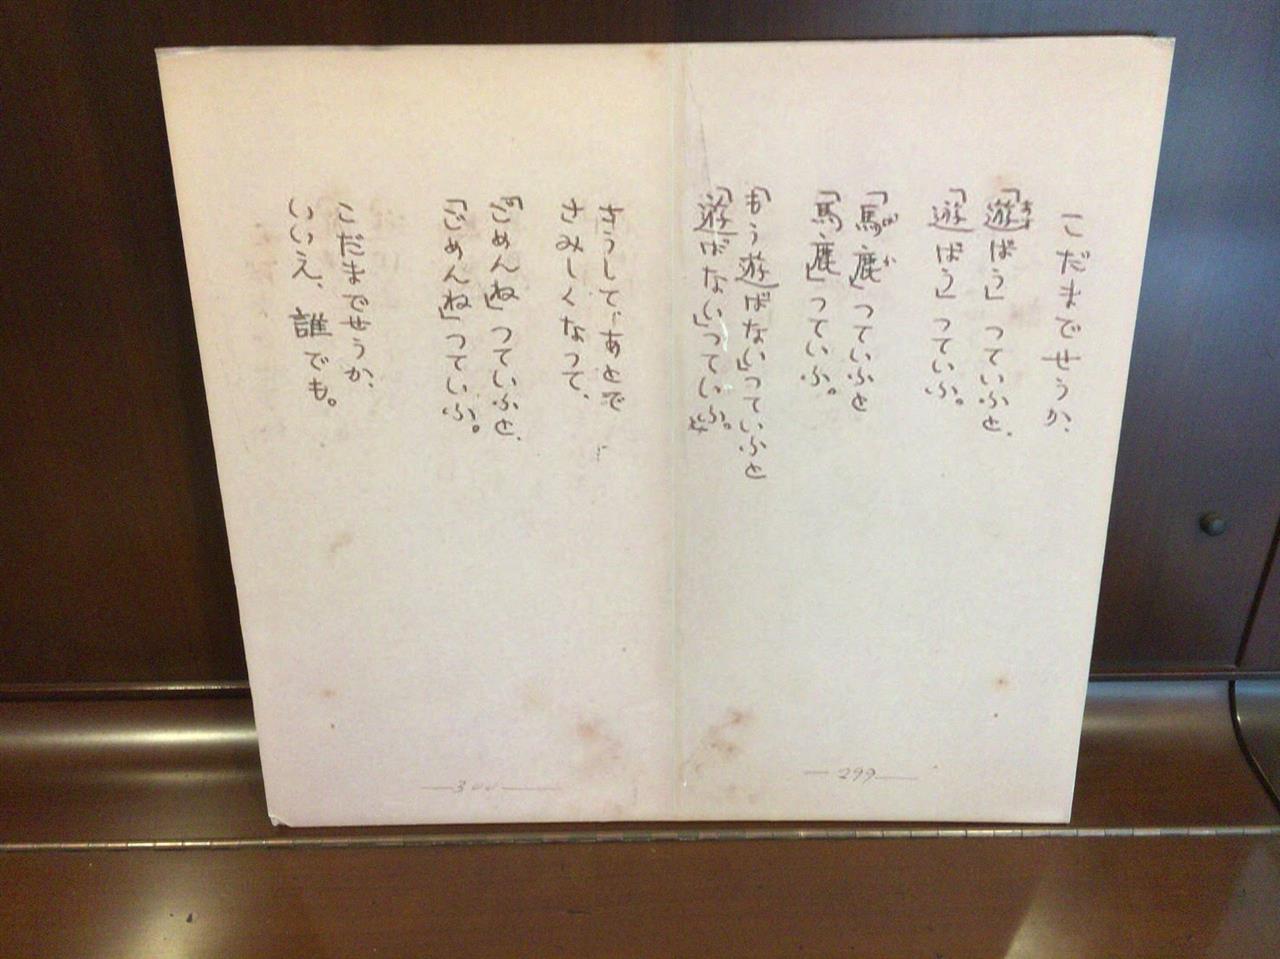 こだまでせうか、
「遊ばう」っていふと、
「遊ばう」っていふ。
「馬鹿」っていふと
「馬鹿」っていふ。
「もう遊ばない」っていふと
「遊ばない」っていふ。
さうして、あとで
さみしくなって、
「ごめんね」っていふと、
「ごめんね」っていふ。
こだまでせうか、
いいえ、誰でも。
299
300